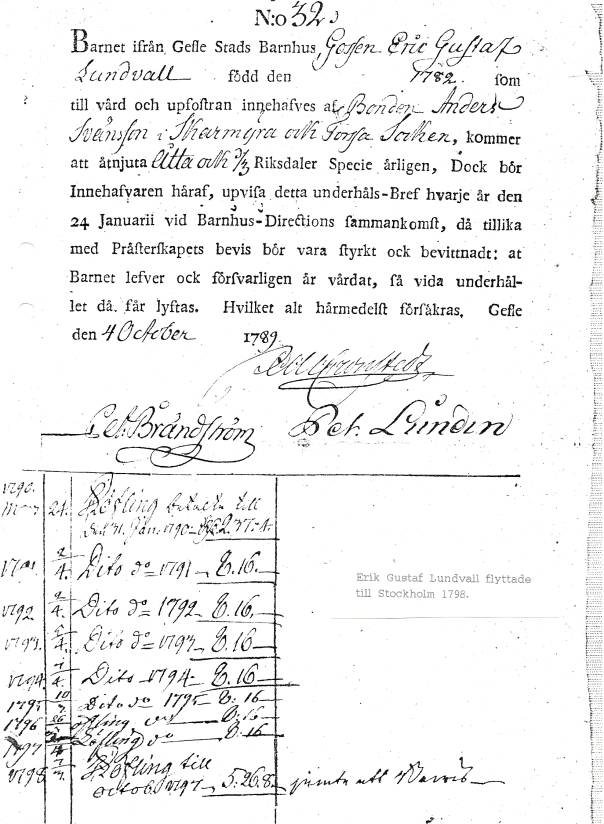 N:o 32
Barnet ifrån Gefle Stads Barnhus Gossen Eric Gustaf
Lundvall född den 1782 som
till vård och upfostran innehafves af Bonden Anders
Svänsson i Skarmyra och Forsa Socken, kommer
att åtnjuta Åtta och 2/3 Riksdaler Specie årligen, Dock bör
Innehafvaren häraf, upvisa detta underhåls-Bref hvarje år den
24 Januarii vid Barnhus-Directions sammankomst, då tillika
med Prästerskapets bevis bör vara styrkt ock bevittnadt: at
Barnet lefver ock försvarligen är vårdat, så vida underhål-
let då får lyftas. Hvilket alt härmedelst försäkras. Gefle
den 4 October 1789
Pet. Brändström Pet. Lundin
1790. 24. betalt till
den 31. Jan. 1790
1791 2/4. Dito do 1791 8.16.
1792 2/4. Dito do 1792 8.16.
1793. Dito do 1793 8.16
1794. Dito 1794 8.16
1795 10/3. Dito do 1795 8:16
1796 do 8:16
1797 do 8:16
1798 7/3. till
octob. 1797 5:26.8.
Erik Gustaf Lundvall flyttade
till Stockholm 1798.